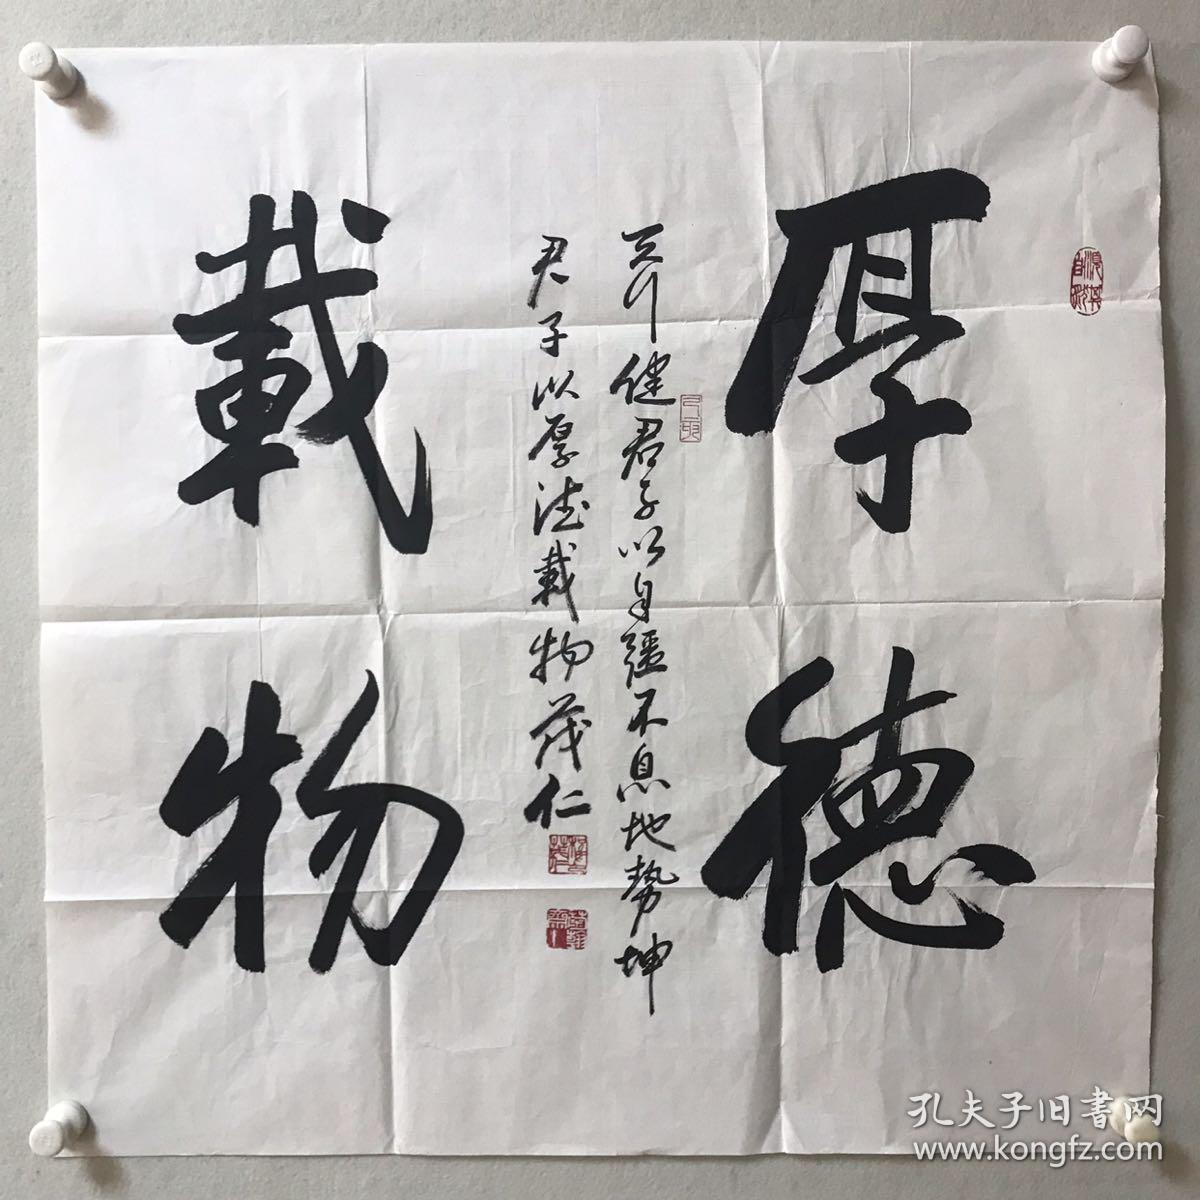 厚德
載物
天行健君子以自彊不息地勢坤
君子以厚德載物茂仁
孔夫子旧書网
www.kongfz.com